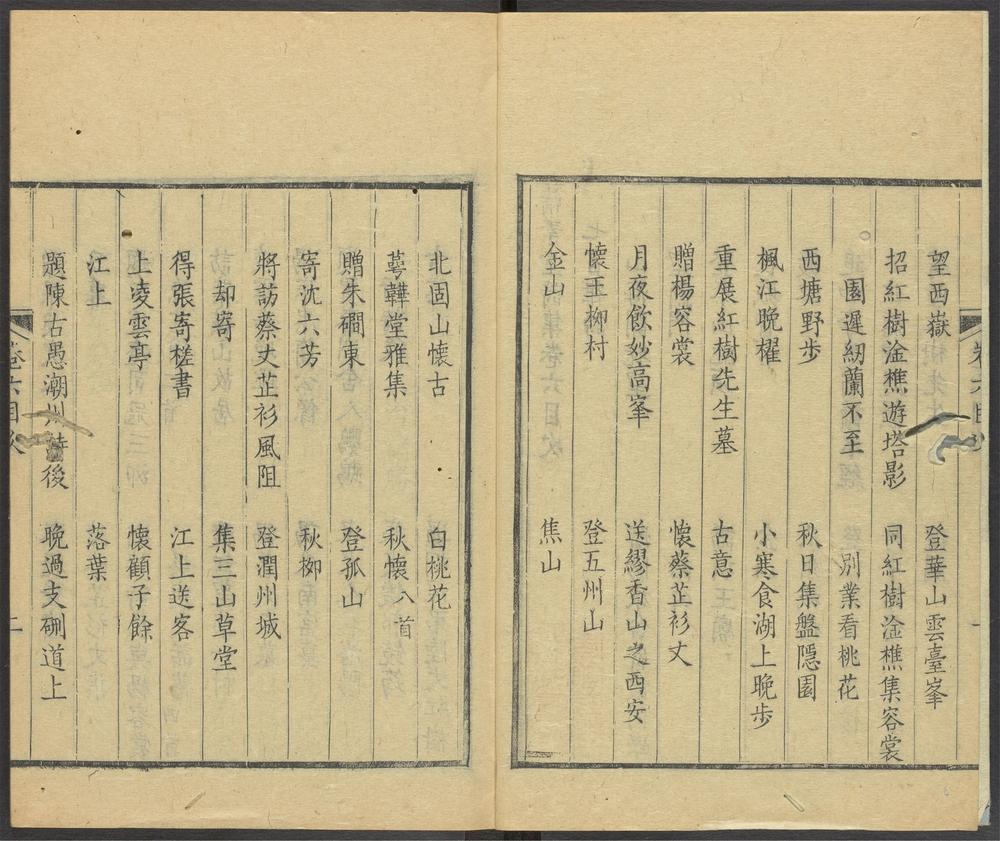 望西嶽　登華山雲臺峯
招紅樹淦樵遊塔影　同紅樹淦樵集容裳
園遲紉蘭不至　別業看桃花
西塘野步　秋日集盤隱園
楓江晚櫂　小寒食湖上晚步
重展紅樹先生墓　古意
贈楊容裳　懷蔡芷衫丈
月夜飲妙高峯　送繆香山之西安
懷王柳村　登五州山
金山　焦山
北固山懷古　白桃花
萼韡堂雅集　秋懷八首
贈朱磵東　登孤山
寄沈六芳　秋柳
將訪蔡丈芷衫風阻　登潤州城
却寄　集三山草堂
得張寄槎書　江上送客
上凌雲亭　懷顧子餘
江上　落葉
題陳古愚潮州詩後　晚過支硎道上
卷六目次　二